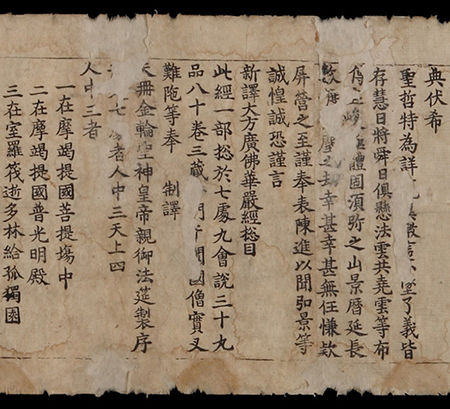 典伏希
聖哲特為詳了義皆
存慧日將舜日俱懸法雲共堯雲等布
體固須弥之山景曆延長
之劫幸甚幸甚無任慊欵
屏營之至謹奉表陳進以聞弘景等
誠惶誠恐謹言
新譯大方廣佛華嚴經揔目
此經一部揔於七處九會說三十九
品八十卷三藏門于闐國僧實叉
難陁等奉 制譯
冊金輪聖神皇帝親御法筵製序
七者人中三天上四
人中三者
一在摩竭提國菩提塲中
二在摩竭提國普光明殿
三在室羅筏逝多林給孤獨園